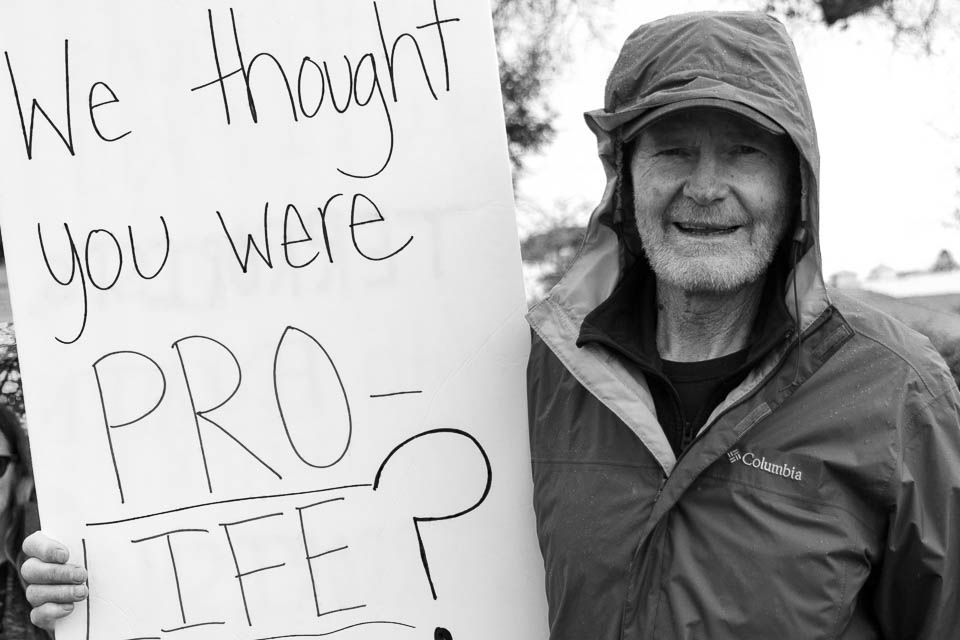 We thought
you were
PRO-
LIFE?
Columbia